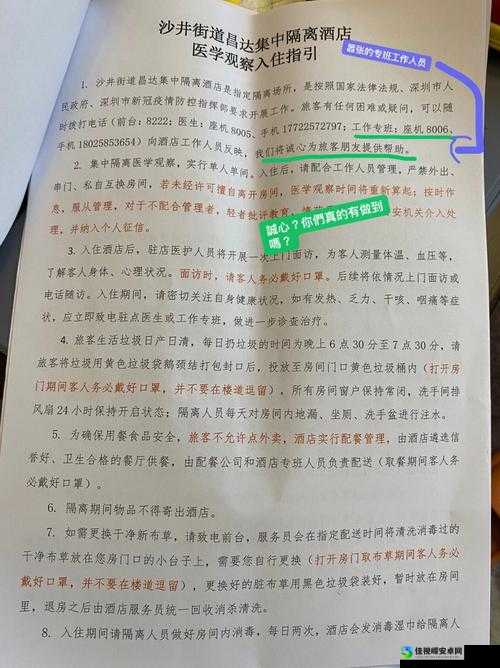 沙井街道昌达集中隔离酒店
医学观察入住指引
嚣张的专班工作人员
1. 沙井街道昌达集中隔离酒店是指定隔离场所，是按照国家法律法规、深圳市人
民政府、深圳市新冠疫情防控指挥部要求开展工作。旅客有任何困难或疑问，可以随
时拨打电话（前台：8222；医生：座机 8005、手机 17722572797；工作专班：座机 8006、
手机 18025853654）向酒店工作人员反映，我们将诚心为旅客朋友提供帮助。
2. 集中隔离医学观察，实行单人单间。入住后，请配合工作人员管理，严禁外出、
串门、私自互换房间，若未经许可擅自离开房间，医学观察时间将重新算起；按时作
息，服从管理，对于不配合管理者，轻者批评教育，安机关介入处
理，并纳入个人征信。
誠心？你們真的有做到
嗎？
3. 入住酒店后，驻店医护人员将开展一次上门面访，为客人测量体温、血压等，
了解客人身体、心理状况。面访时，请客人务必戴好口罩。后续将依情况上门面访或
电话随访。入住期间，请密切关注自身健康状况，如有发热、乏力、干咳、咽痛等症
状，应立即致电驻点医生或工作专班，做进一步诊查治疗。
4. 旅客生活垃圾日产日清，每日扔垃圾的时间为晚上 6 点 30 分至 7 点 30 分，请
旅客将垃圾用黄色垃圾袋鹅颈结打包封口后，投放至房间门口黄色垃圾桶内（打开房
门期间客人务必戴好口罩，并不要在楼道逗留），所有房间窗户保持常闭，洗手间排
风扇 24 小时保持开启状态；隔离人员每天对房间内地漏、坐厕、洗手盆进行注水。
5. 为确保用餐食品安全，旅客不允许点外卖，酒店实行配餐管理，由酒店遴选信
誉好、卫生合格的餐厅供餐，由配餐公司和酒店专班人员负责配送（取餐期间客人务
必戴好口罩）。
6. 隔离期间物品不得寄出酒店。
7. 如需更换干净新布草，请致电前台，服务员会在指定配送时间将清洗消毒过的
干净布草放在您房门口的小台子上，需要您自行更换（打开房门取布草期间客人务必
戴好口罩，并不要在楼道逗留），更换好的脏布草用黑色垃圾袋装好，暂时放在房间
里，退房之后由酒店服务员统一回收消杀清洗。
8. 入住期间请隔离人员做好房间内消毒，每日两次，酒店会发消毒湿巾给隔离人
佳视嵘安卓网